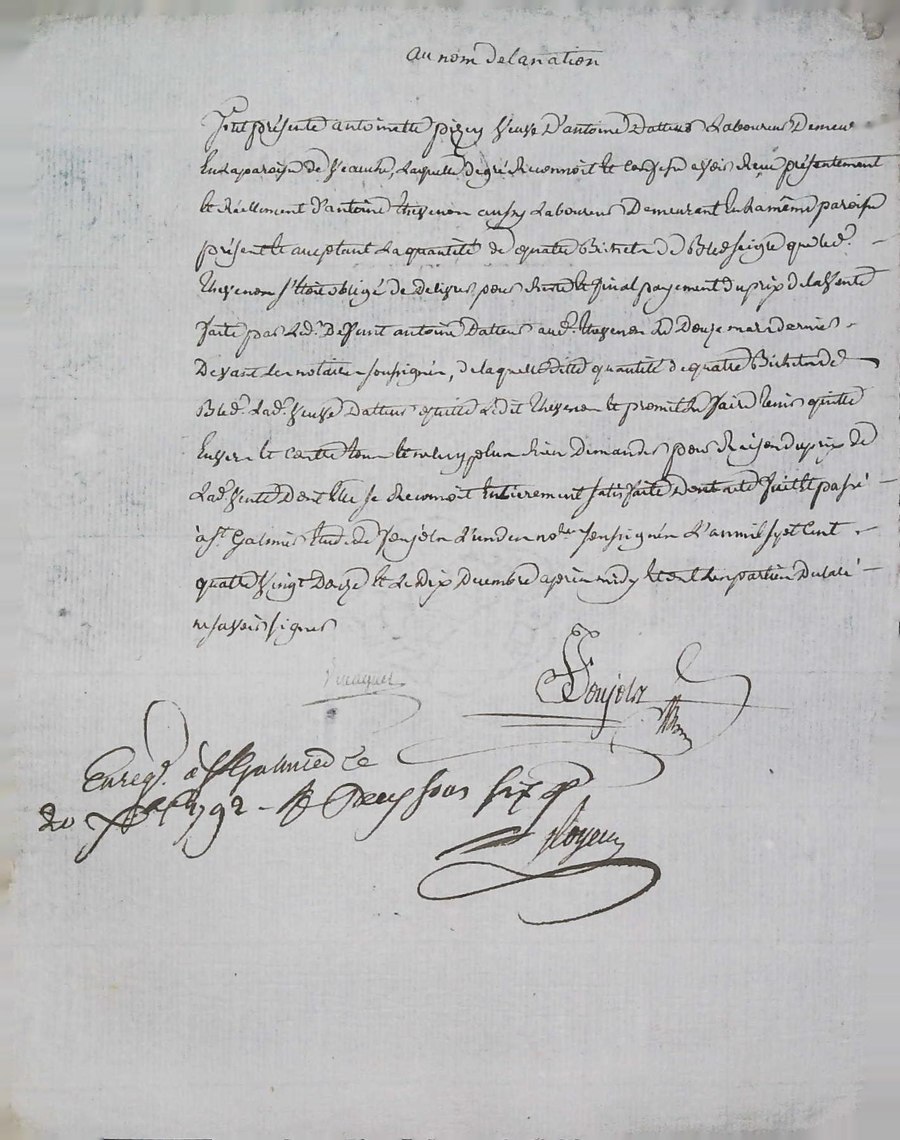 au nom de la nation
fut présente antoinette pizey veuve d'antoine Datteus Laboureur Demeur
En la paroisse de Veauche, Laquelle de gré Reconnoit et confesse avoir Reçu présentement
et Réellement d'antoine thevenon aussy Laboureur Demeurant En ka même paroisse
présent et acceptant La quantité de quatre Bichets de Bled seigle que led.
thevenon s'étoit obligé de delivrer pour Reste et final payement du prix de la Vente
faite par Led. Deffunt antoine Datteus aud. thevenon Le Douze mars dernier
Devant les notaires soussignés, de laquelle ditte quantité de quatre Bichets de
Bled. Lad. Veuve Datteus quitte Ledit thevenon et promet le faire tenir quitte
Envers et contre tous et n'en plus Rien Demander pour Raison du prix de
Lad. Vente Dont Elle se Reconnoit Entierement satisfaite Dont acte fait et passé
à St. Galmier Etude de Ponjolx L'un des nores soussignés L'an mil sept Cent
quatre Vingt Douze et Le Dix Decembre après midy et ont les parties Declaré
ne savoir signer
Ponjolx
Enreg. à St Galmier Le
20 Xbre 1792 - R Deux sous six